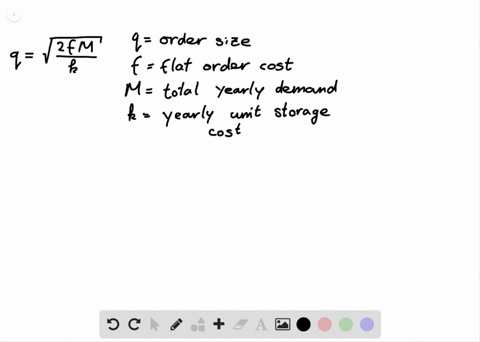 q = √(2fM/k)
q = order size
f = flat order cost
M = total yearly demand
k = yearly unit storage
cost
A